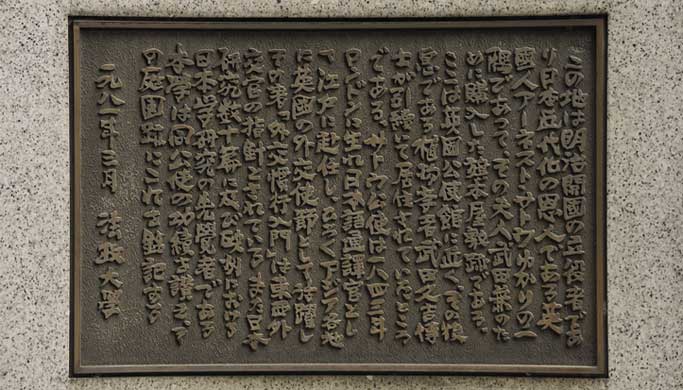 この地は明治開國の立役者であ
り日本近代化の恩人である英
國人アーネスト・サトウゆかりの一
隅であって、その夫人武田兼のた
めに購入した旗本屋敷跡である。
ここは英國公使館に近く、その後
息である植物学者武田久吉博
士が引續いて居住されていたところ
である。サトウ公使は一八四三年
ロンドンに生れ日本語通譯官とし
て江戸に赴任しひろくアジア各地
に英國の外交使節として活躍し
その著「外交慣行入門」は東西外
交官の指針とされている。また日本
研究数十篇に及び欧州における
日本学研究の先覺者である
本学は同公使の功績を讃えこ
の庭園跡にこれを銘記する
一九八一年三月　法政大學